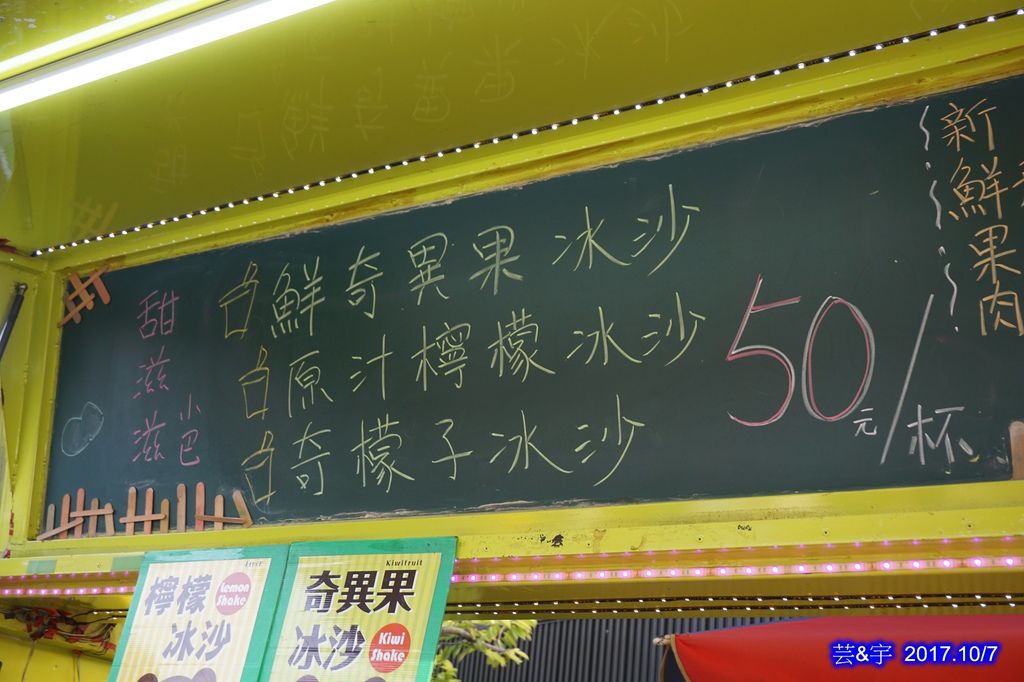 甜滋滋
小巴
鮮奇異果冰沙
原汁檸檬冰沙
奇檬子冰沙
50元/杯
新鮮果肉
檸檬
Lemon Shake
冰沙
Kiwifruit
奇異果
冰沙
Kiwi Shake
芸&宇 2017.10/7